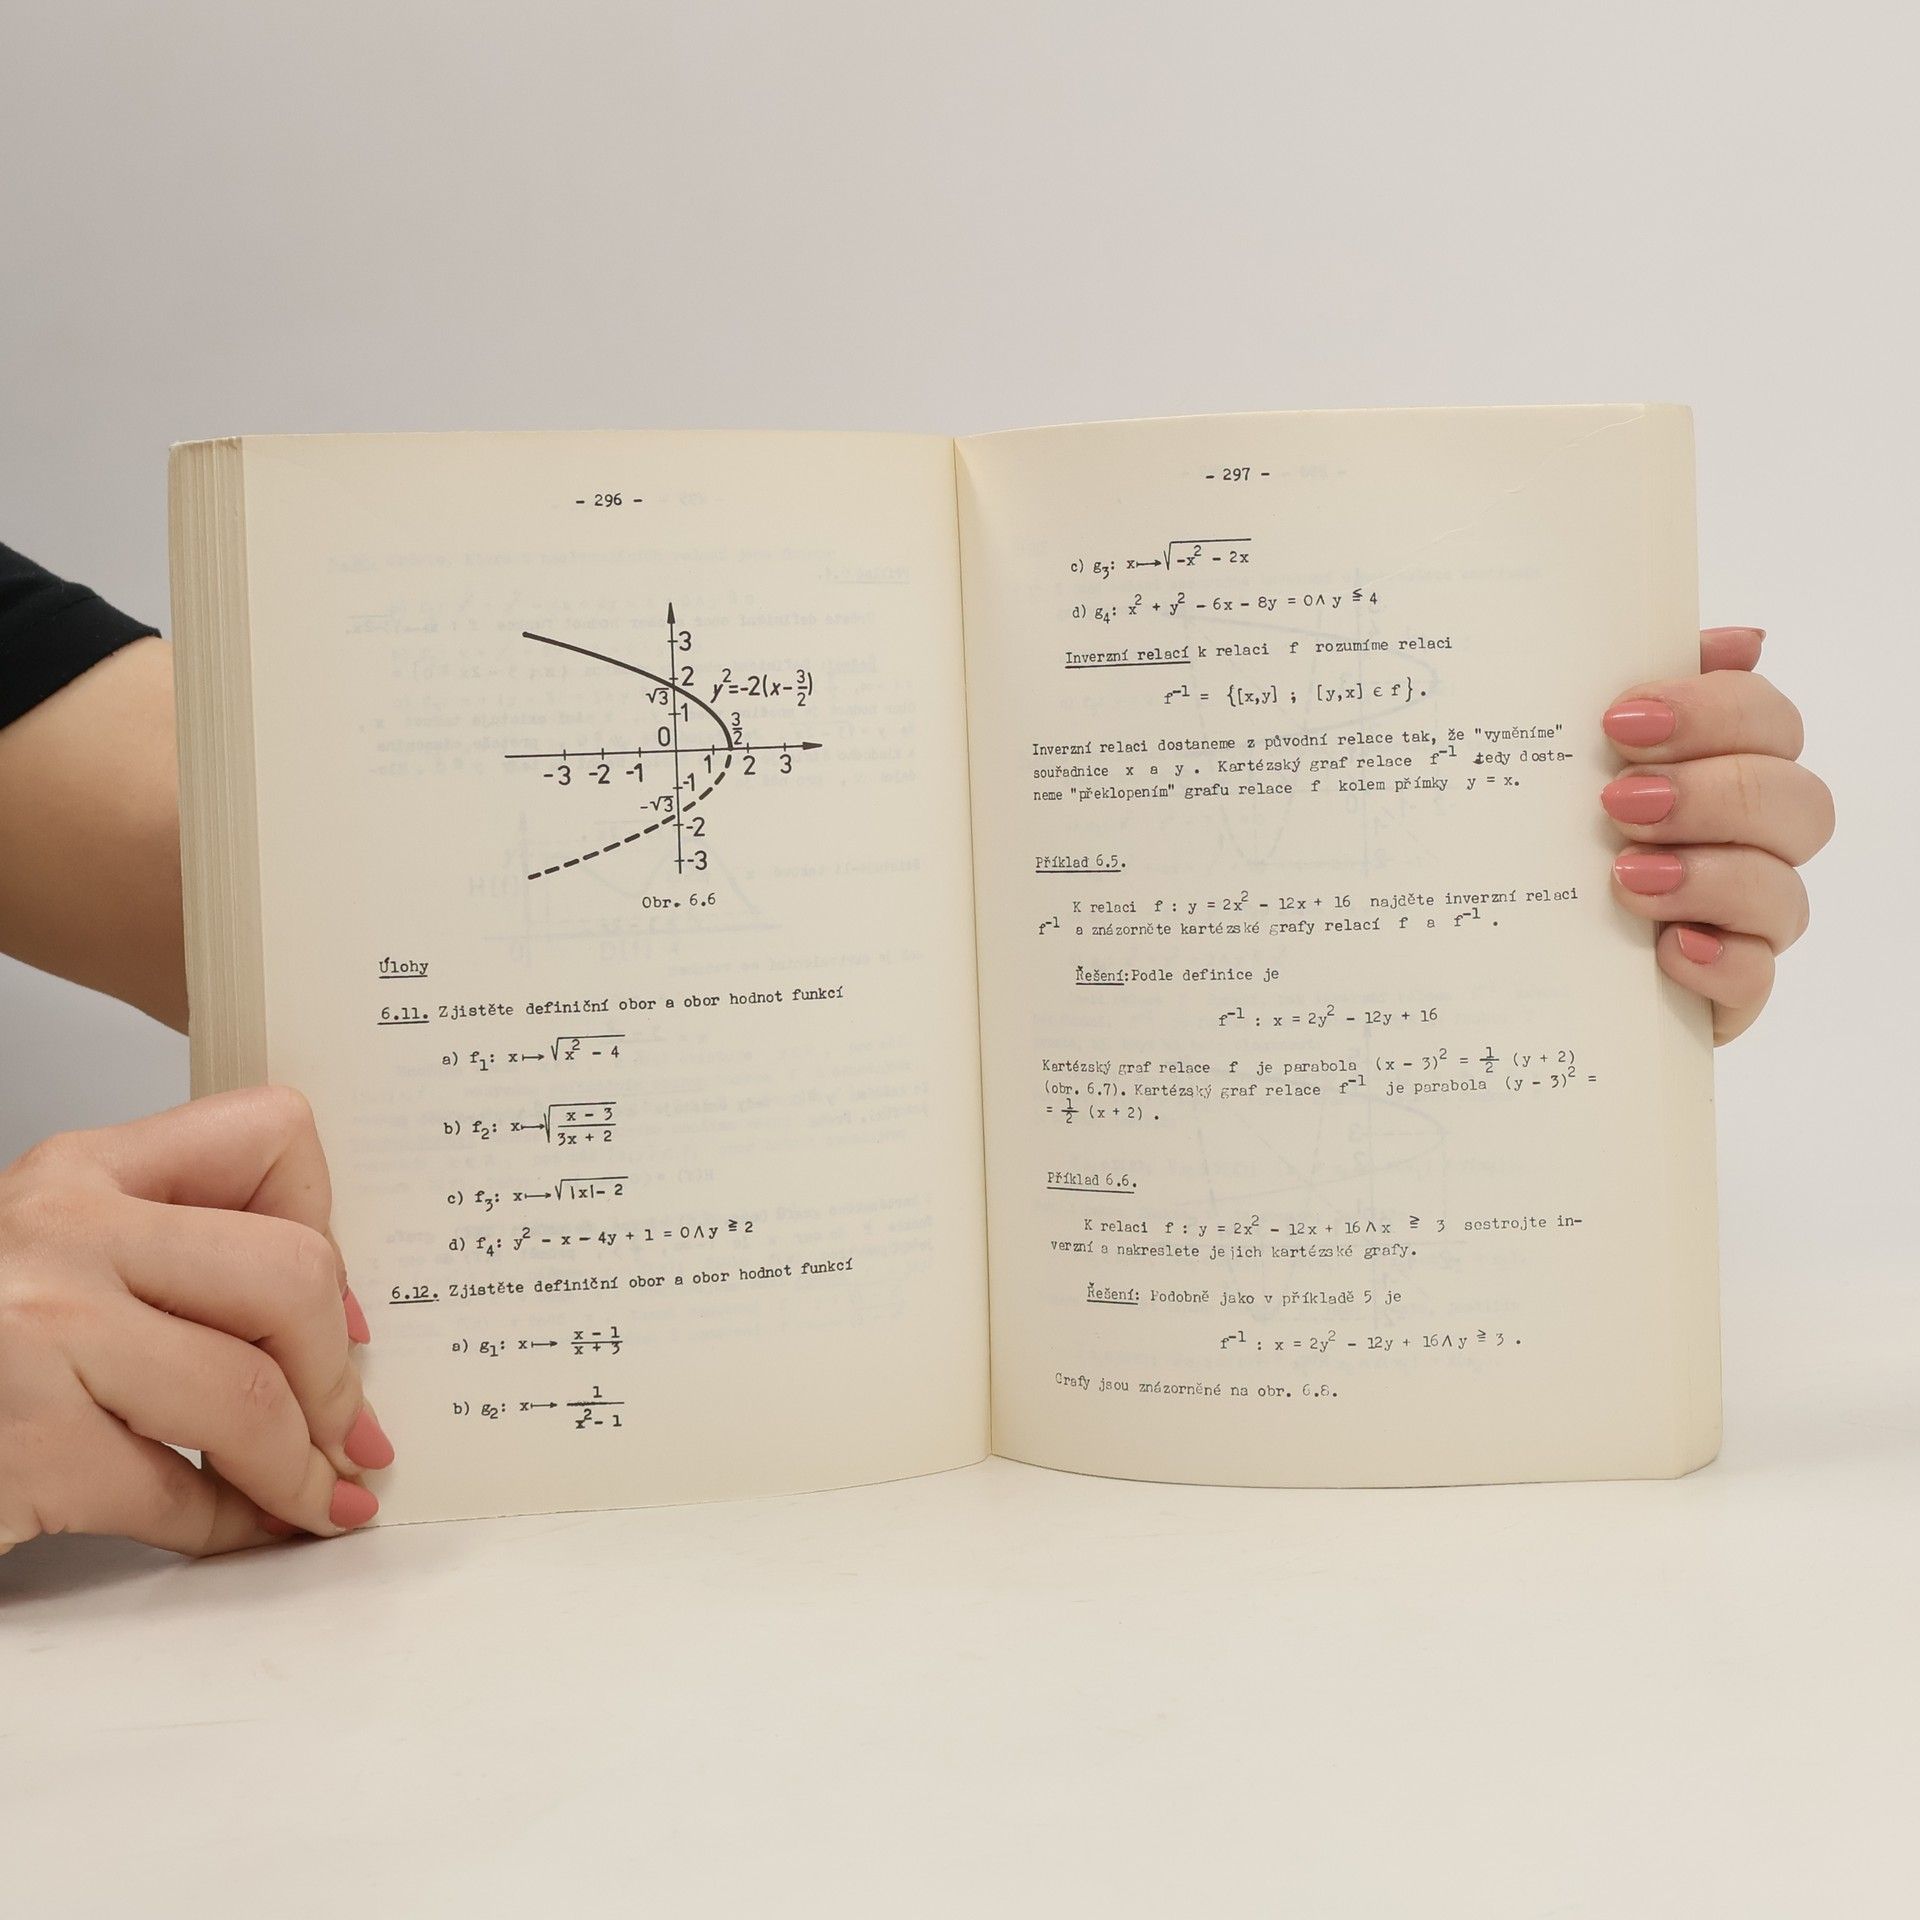 - 296 -
3
2
y²=-2(x-3/2)
√3
1
3/2
0
-3 -2 -1 1 2 3
-1
-√3
-2
-3
Obr. 6.6
Úlohy
6.11. Zjistěte definiční obor a obor hodnot funkcí
a) f₁: x↦√(x² - 4)
b) f₂: x↦√((x - 3)/(3x + 2))
c) f₃: x↦√(|x|- 2)
d) f₄: y² - x - 4y + 1 = 0∧y ≧ 2
6.12. Zjistěte definiční obor a obor hodnot funkcí
a) g₁: x↦ (x - 1)/(x + 3)
b) g₂: x↦ 1/(x²- 1)
- 297 -
c) g₃: x↦√(-x² - 2x)
d) g₄: x² + y² - 6x - 8y = 0∧y ≦ 4
Inverzní relací k relaci f rozumíme relaci
f⁻¹ = {[x,y] ; [y,x] ∈ f}.
Inverzní relaci dostaneme z původní relace tak, že "vyměníme"
souřadnice x a y . Kartézský graf relace f⁻¹ tedy dosta-
neme "překlopením" grafu relace f kolem přímky y = x.
Příklad 6.5.
K relaci f : y = 2x² - 12x + 16 najděte inverzní relaci
f⁻¹ a znázorněte kartézské grafy relací f a f⁻¹ .
Řešení:Podle definice je
f⁻¹ : x = 2y² - 12y + 16
Kartézský graf relace f je parabola (x - 3)² = 1/2 (y + 2)
(obr. 6.7). Kartézský graf relace f⁻¹ je parabola (y - 3)² =
= 1/2 (x + 2) .
Příklad 6.6.
K relaci f : y = 2x² - 12x + 16∧x ≧ 3 sestrojte in-
verzní a nakreslete jejich kartézské grafy.
Řešení: Podobně jako v příkladě 5 je
f⁻¹ : x = 2y² - 12y + 16∧y ≧ 3 .
Grafy jsou znázorněné na obr. 6.8.